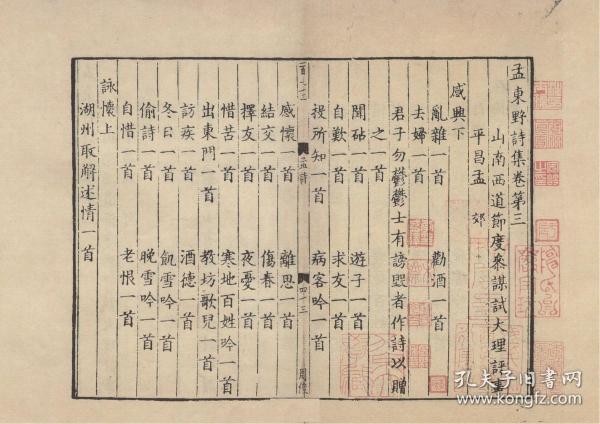 孟東野詩集卷第三
山南西道節度參謀試大理評事
平昌孟 郊
感興下
亂離一首 勸酒一首
去婦一首
君子勿鬱鬱士有謗毀者作詩以贈
之一首
聞砧一首 遊子一首
自歎一首 求友一首
投所知一首 病客吟一首
孟詩
四十三
感懷一首 離思一首
結交一首 傷春一首
擇友一首 夜憂一首
惜苦一首 寒地百姓吟一首
出東門一首 教坊歌兒一首
訪疾一首 酒德一首
冬日一首 飢雪吟一首
偷詩一首 晚雪吟一首
自惜一首 老恨一首
詠懷上
湖州取解述情一首
孔夫子旧书网
www.kongfz.com